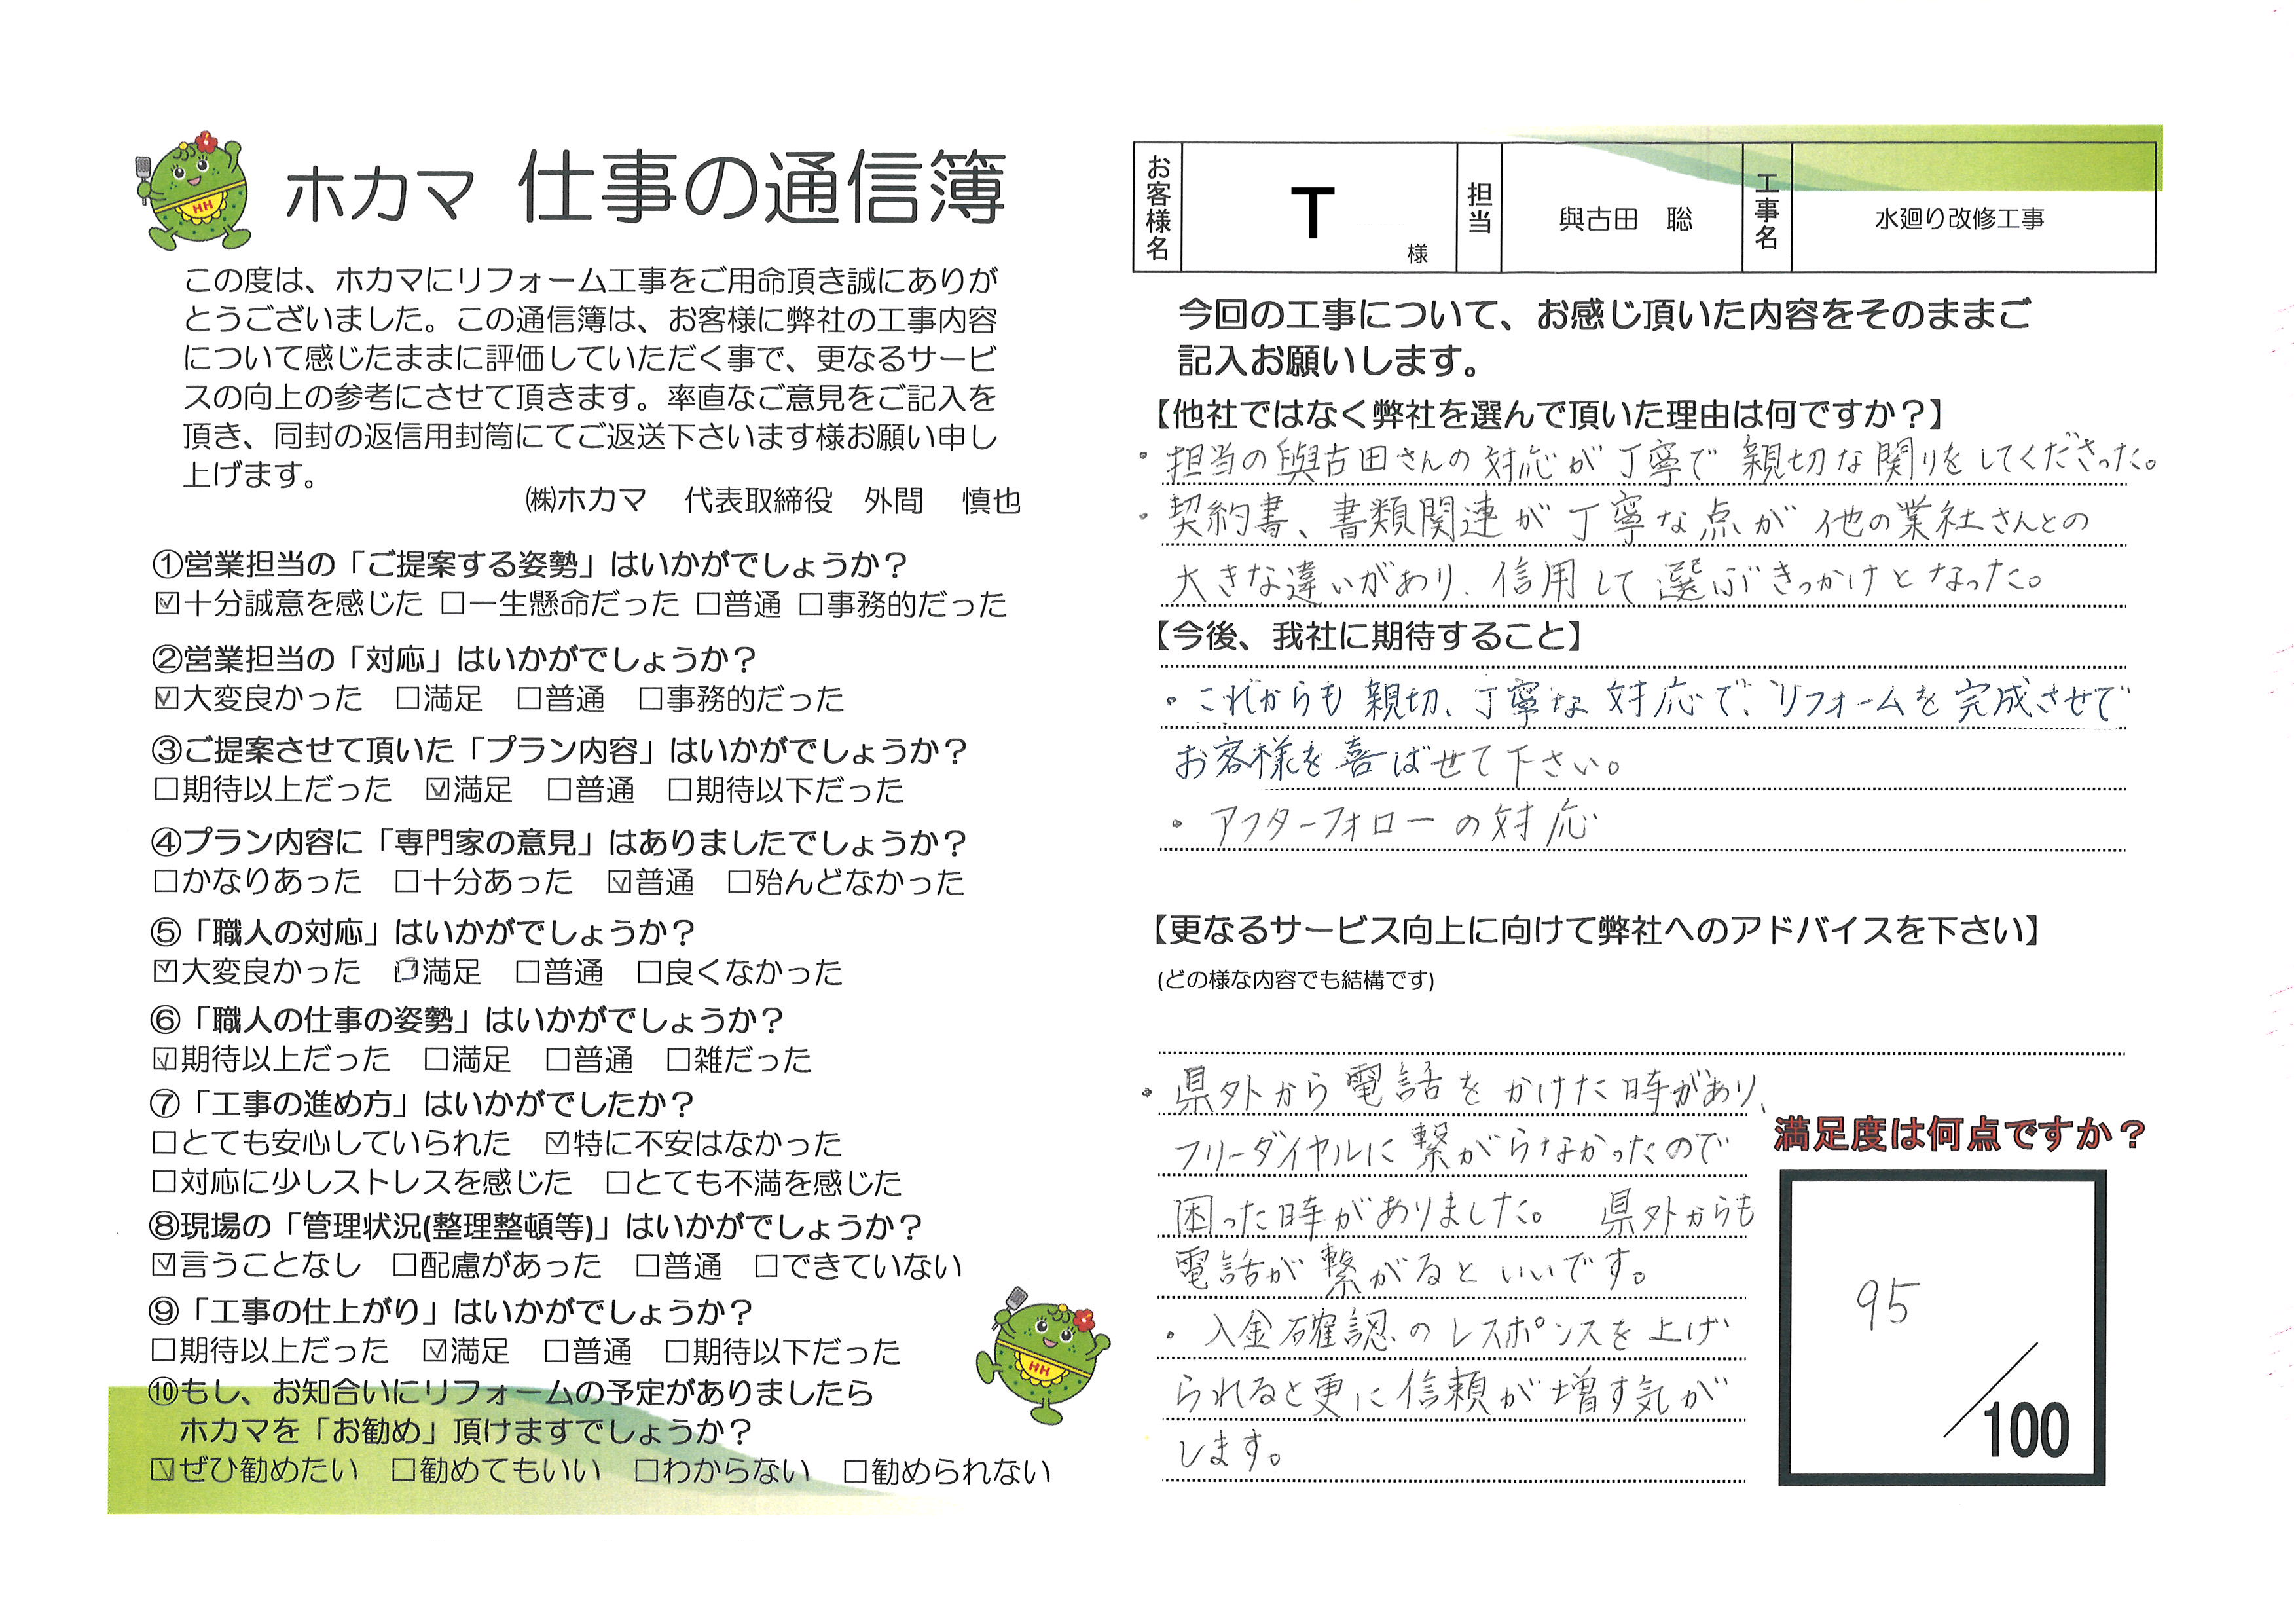 ホカマ 仕事の通信簿
この度は、ホカマにリフォーム工事をご用命頂き誠にありが
とうございました。この通信簿は、お客様に弊社の工事内容
について感じたままに評価していただく事で、更なるサービ
スの向上の参考にさせて頂きます。率直なご意見をご記入を
頂き、同封の返信用封筒にてご返送下さいます様お願い申し
上げます。
㈱ホカマ 代表取締役 外間 慎也
①営業担当の「ご提案する姿勢」はいかがでしょうか？
☑十分誠意を感じた □一生懸命だった □普通 □事務的だった
②営業担当の「対応」はいかがでしょうか？
☑大変良かった □満足 □普通 □事務的だった
③ご提案させて頂いた「プラン内容」はいかがでしょうか？
□期待以上だった ☑満足 □普通 □期待以下だった
④プラン内容に「専門家の意見」はありましたでしょうか？
□かなりあった □十分あった ☑普通 □殆んどなかった
⑤「職人の対応」はいかがでしょうか？
☑大変良かった □満足 □普通 □良くなかった
⑥「職人の仕事の姿勢」はいかがでしょうか？
☑期待以上だった □満足 □普通 □雑だった
⑦「工事の進め方」はいかがでしたか？
□とても安心していられた ☑特に不安はなかった
□対応に少しストレスを感じた □とても不満を感じた
⑧現場の「管理状況(整理整頓等)」はいかがでしょうか？
☑言うことなし □配慮があった □普通 □できていない
⑨「工事の仕上がり」はいかがでしょうか？
□期待以上だった ☑満足 □普通 □期待以下だった
⑩もし、お知合いにリフォームの予定がありましたら
ホカマを「お勧め」頂けますでしょうか？
☑ぜひ勧めたい □勧めてもいい □わからない □勧められない
HH
HH
お客様名 T 様 担当 與古田 聡 工事名 水廻り改修工事
今回の工事について、お感じ頂いた内容をそのままご
記入お願いします。
【他社ではなく弊社を選んで頂いた理由は何ですか？】
・担当の與古田さんの対応が丁寧で親切な関りをしてくださった。
・契約書、書類関連が丁寧な点が他の業社さんとの
大きな違いがあり、信用して選ぶきっかけとなった。
【今後、我社に期待すること】
・これからも親切、丁寧な対応で、リフォームを完成させて
お客様を喜ばせて下さい。
・アフターフォローの対応
【更なるサービス向上に向けて弊社へのアドバイスを下さい】
(どの様な内容でも結構です)
・県外から電話をかけた時があり、
フリーダイヤルに繋がらなかったので
困った時がありました。 県外からも
電話が繋がるといいです。
・入金確認のレスポンスを上げ
られると更に信頼が増す気が
します。
満足度は何点ですか？
95
／100